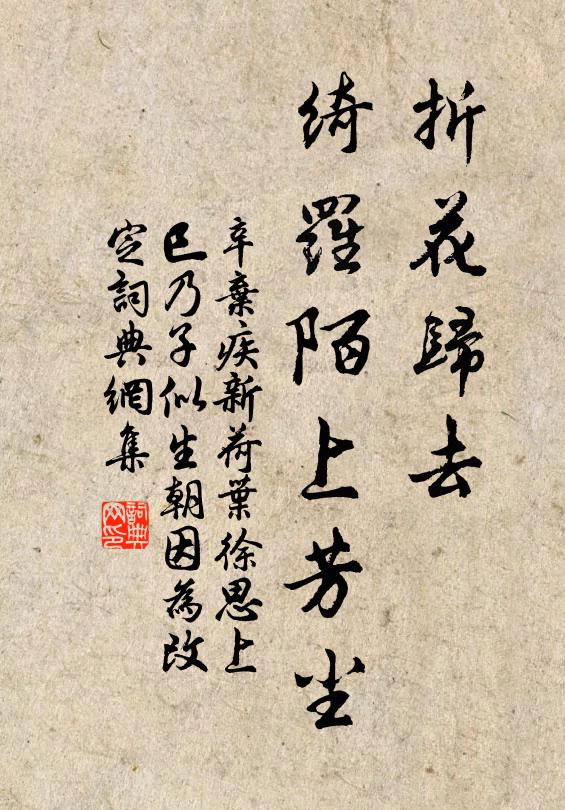 折花歸去
綺羅陌上芳尘
辛棄疾新荷葉徐思上
巳乃子似生朝因為改
定詞典網集
詞典
网印